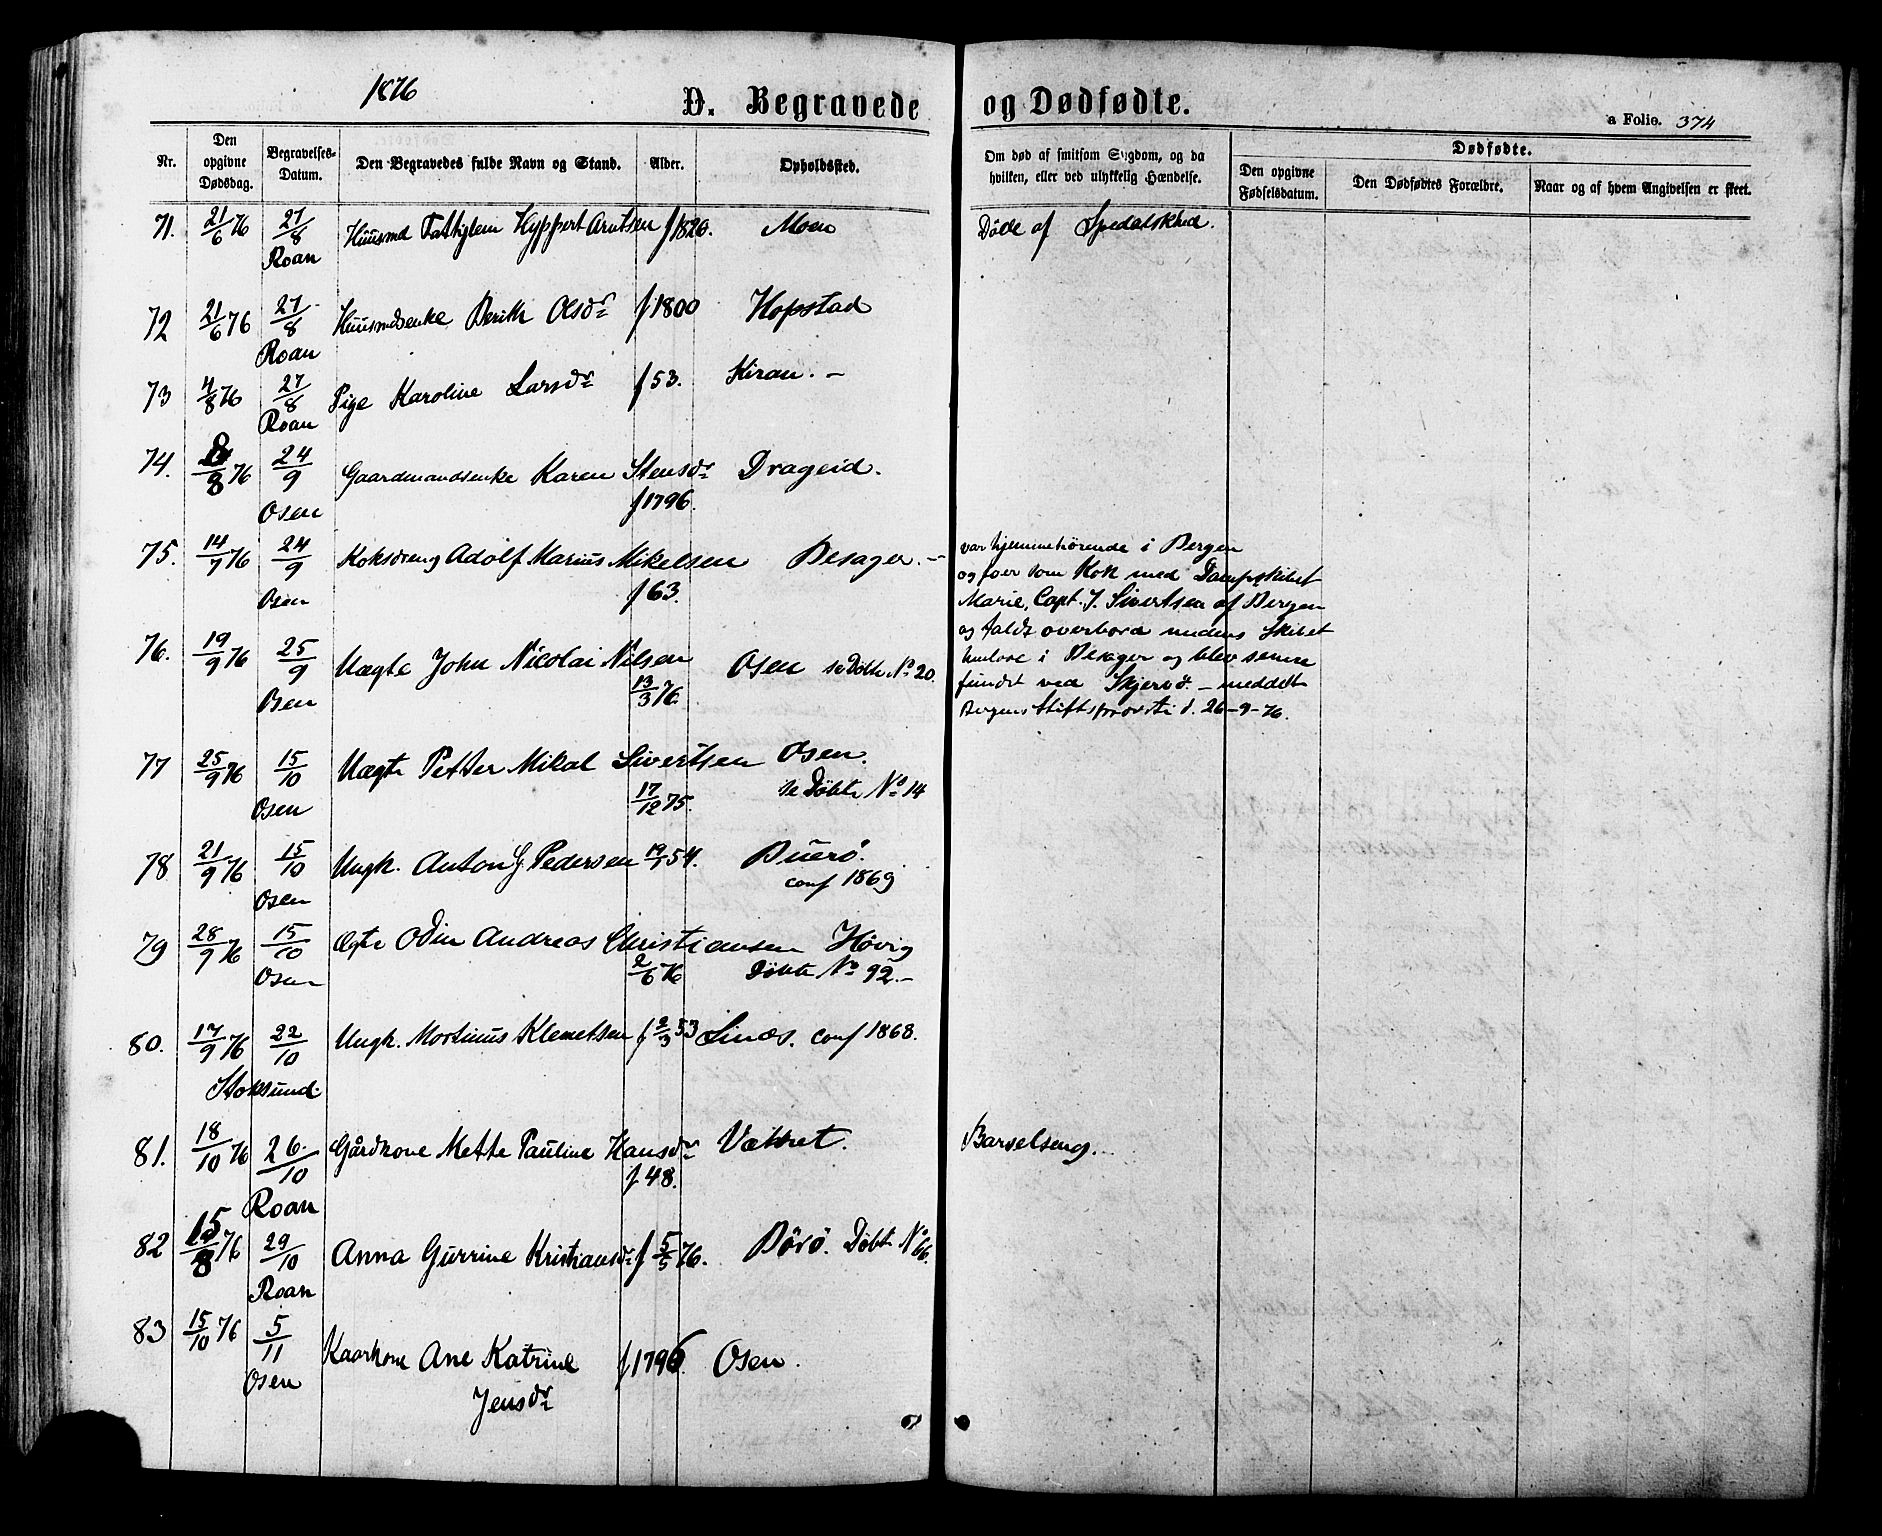 1876
D. Begravede og Dødfødte.
a Folio. 374
Nr.
Den opgivne Dødsdag.
Begravelses-Datum.
Den Begravedes fulde Navn og Stand.
Alder.
Opholdssted.
Om død af smitsom Sygdom, og da hvilken, eller ved ulykkelig Hændelse.
Dødfødte.
Den opgivne Fødselsdatum.
Den Dødfødtes Forældre.
Naar og af hvem Angivelsen er skeet.
71. 21/6 76 27/8 Huusmd Fattiglem Hyppert Arntsen f 1820. Moen Døde af Spedalskhed.
Roan
72 21/6 76 27/8 Huusmdsenke Berith Olsdr f 1800 Hopstad
Roan
73 4/8 76 27/8 Pige Karoline Larsdr f 53. Kiran. -
Roan
74. 8/8 76 24/9 Gaardmandsenke Karen Stensdr Drageid.
Osen f 1796.
75. 14/7 76 24/9 Koksdreng Adolf Marius Mikelsen Besager. -
Osen f 63.
var hjemmehørende i Bergen
og foer som Kok med Dampskibet
Marie, Capt. J. Sivertsen af Bergen
og faldt overbord medens Skibet
i Besager og blev senere
fundet ved Skjervø. - meddelt
Bergens Stiftsprovsti d. 26-9-76.
76. 19/9 76 25/9 Uægte John Nicolai Nilsen Osen se Døbte No 20.
Osen 13/3 76.
77 25/9 76 15/10 Uægte Petter Mikal Sivertsen Osen.
Osen 17/12 75. se Døbte No 14
78 21/9 76 15/10 Ungk. Anton G Pedersen 19/1 54. Buerø.
Osen conf 1869
79 28/9 76 15/10 Ægte Odin Andreas Christiansen Høvig
Osen 2/6 76 Døbte No 92. -
80. 17/9 76 22/10 Ungk. Mortinus Klemetsen f 2/3 53 Sinæs. conf 1868.
Stoksund.
81. 18/10 76 26/10 Gårdkone Mette Pauline Hansdr Vækret. Barselseng.
Roan f 48.
82 15/8 76 29/10 Anna Gurrine Kristiansdr f 5/5 76. Børø. Døbt No 66.
Roan
83 15/10 76 5/11 Kaarkone Ane Katrine f 1796. Osen.
Osen Jensdr